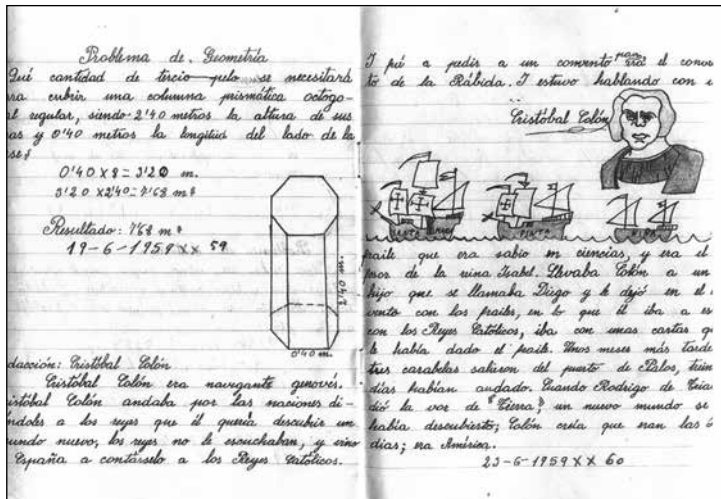 Problema de Geometría
Qué cantidad de terciopelo se necesitará
ra cubrir una columna prismática octogo-
al regular, siendo 2'40 metros la altura de sus
as y 0'40 metros la longitud del lado de la
se?
0'40 X 8 = 3'20 m.
3'20 X 2'40 = 7'68 m²
Resultado: 7'68 m²
19-6-1959 XX 59
2'40 m.
0'40 m.
dacción: Cristóbal Colón
Cristóbal Colón era navegante genovés.
istóbal Colón andaba por las naciones di-
éndoles a los reyes que él quería descubrir un
undo nuevo, los reyes no le escuchaban, y vino
España a contárselo a los Reyes Católicos.
I fué a pedir a un convento para era el conven
to de la Rábida. I estuvo hablando con
Cristóbal Colón
SANTA MARIA PINTA NIÑA
fraile que era sabio en ciencias, y era el
fesor de la reina Isabel. Llevaba Colón a un
hijo que se llamaba Diego y le dejó en el
vento con los frailes, en lo que él iba a
con los Reyes Católicos, iba con unas cartas
le había dado el fraile. Unos meses más tarde
tres carabelas salieron del puerto de Palos,
días habían andado. Cuando Rodrigo de
dió la voz de "Tierra", un nuevo mundo se
había descubierto; Colón creía que eran las
dias; era América.
23-6-1959 XX 60